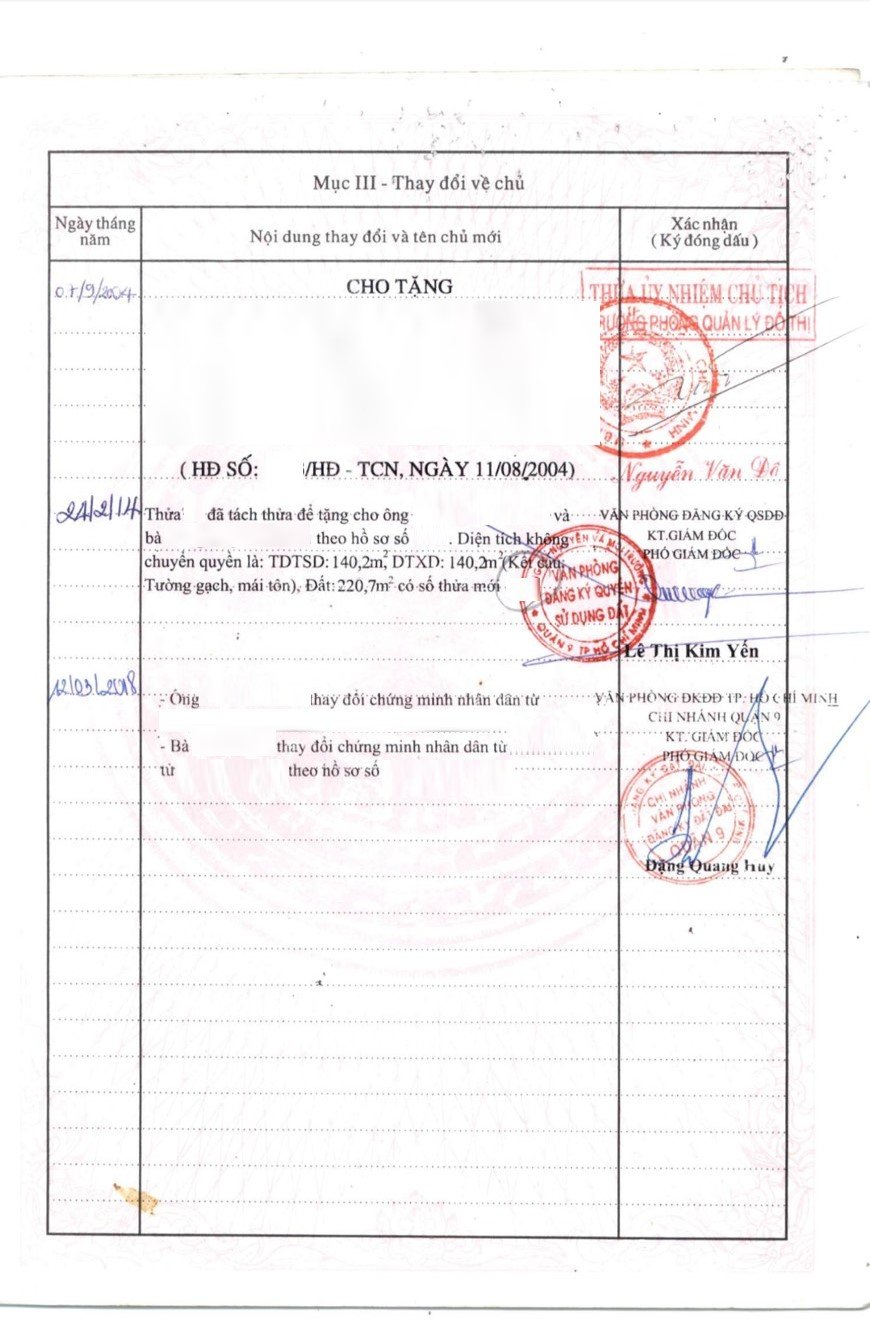 Mục III - Thay đổi về chủ
Ngày tháng năm
Nội dung thay đổi và tên chủ mới
Xác nhận
( Ký đóng dấu )
/9/2004
CHO TẶNG
THỪA ỦY NHIỆM CHỦ TỊCH
TRƯỞNG PHÒNG QUẢN LÝ ĐÔ THỊ
( HĐ SỐ: /HĐ - TCN, NGÀY 11/08/2004)
Nguyễn Văn Đê
24/2/14
Thửa đã tách thửa để tặng cho ông và
bà theo hồ sơ số . Diện tích không
chuyển quyền là: TDTSD: 140,2m², DTXD: 140,2m² (Kết cấu:
Tường gạch, mái tôn), Đất: 220,7m² có số thửa mới
VĂN PHÒNG ĐĂNG KÝ QSDĐ
KT.GIÁM ĐỐC
PHÓ GIÁM ĐỐC
VĂN PHÒNG
ĐĂNG KÝ QUYỀN
SỬ DỤNG ĐẤT
QUẬN 9 TP HỒ CHÍ MINH
Lê Thị Kim Yến
12/03/2018
- Ông thay đổi chứng minh nhân dân từ
- Bà thay đổi chứng minh nhân dân từ
từ theo hồ sơ số
VĂN PHÒNG ĐKĐĐ TP. HỒ CHÍ MINH
CHI NHÁNH QUẬN 9
KT. GIÁM ĐỐC
PHÓ GIÁM ĐỐC
CHI NHÁNH
VĂN PHÒNG
ĐĂNG KÝ ĐẤT ĐAI
QUẬN 9
Đặng Quang Huy